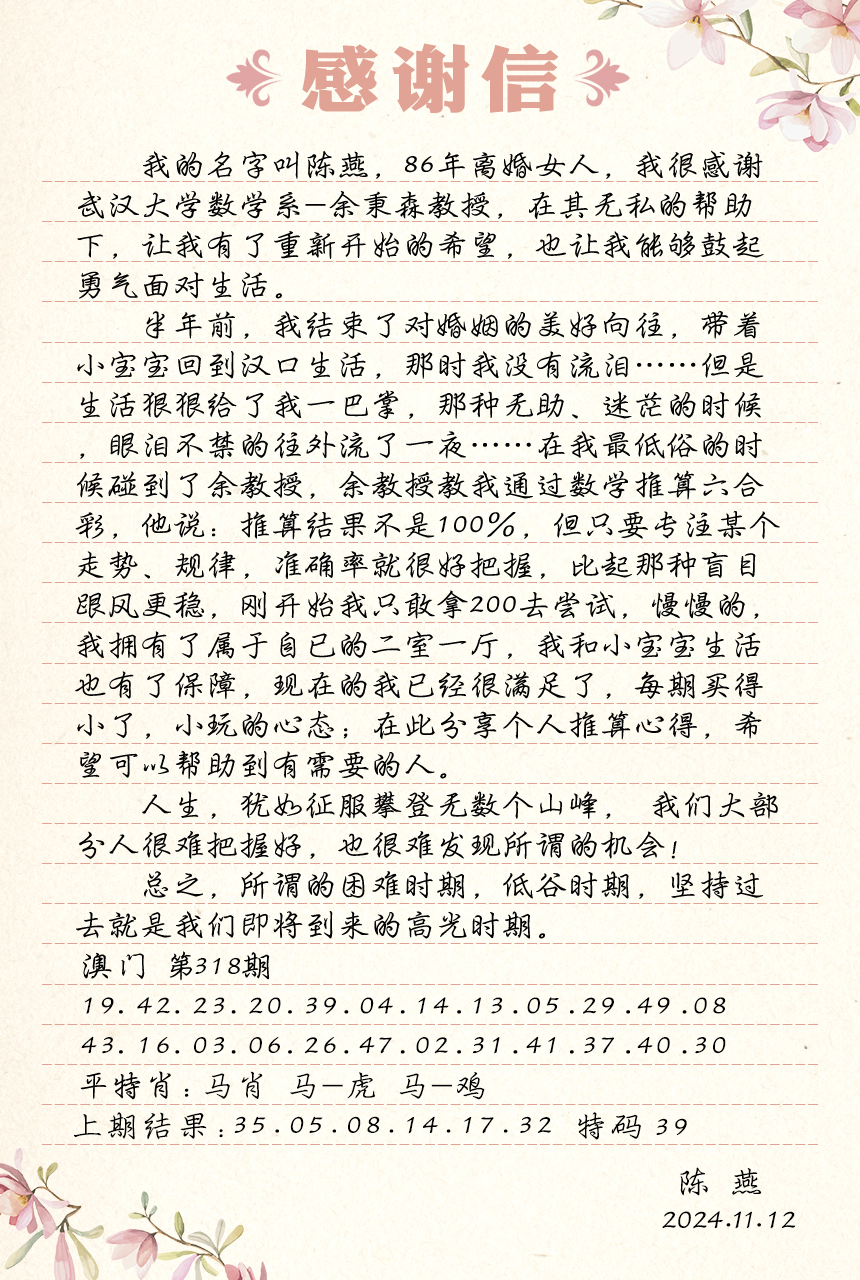 感谢信
我的名字叫陈燕，86年离婚女人，我很感谢
武汉大学数学系—余秉森教授，在其无私的帮助
下，让我有了重新开始的希望，也让我能够鼓起
勇气面对生活。
半年前，我结束了对婚姻的美好向往，带着
小宝宝回到汉口生活，那时我没有流泪……但是
生活狠狠给了我一巴掌，那种无助、迷茫的时候
，眼泪不禁的往外流了一夜……在我最低俗的时
候碰到了余教授，余教授教我通过数学推算六合
彩，他说：推算结果不是100%，但只要专注某个
走势、规律，准确率就很好把握，比起那种盲目
跟风更稳，刚开始我只敢拿200去尝试，慢慢的，
我拥有了属于自已的二室一厅，我和小宝宝生活
也有了保障，现在的我已经很满足了，每期买得
小了，小玩的心态；在此分享个人推算心得，希
望可以帮助到有需要的人。
人生，犹如征服攀登无数个山峰， 我们大部
分人很难把握好，也很难发现所谓的机会！
总之，所谓的困难时期，低谷时期，坚持过
去就是我们即将到来的高光时期。
澳门 第318期
19.42.23.20.39.04.14.13.05.29.49.08
43.16.03.06.26.47.02.31.41.37.40.30
平特肖：马肖 马—虎 马—鸡
上期结果：35.05.08.14.17.32 特码 39
陈 燕
2024.11.12